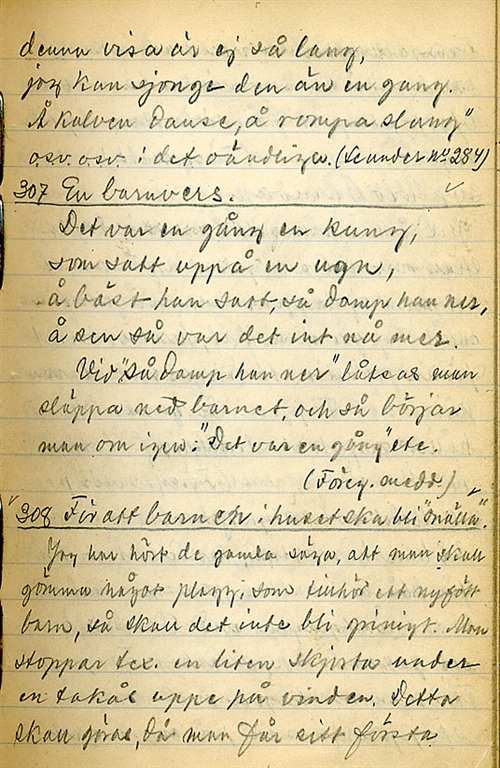 denna visa är ej så lang,
jag kan sjonge den än en gang.
Å kalven danse, å rompa slang"
o.s.v. o.s.v. i det oändliga. (Se under nº 284)
307 En barnvers.
Det var en gång en kung,
som satt uppå en ugn,
å bäst han satt, så damp han ner,
å sen så var det int nå mer.
Vid "så damp han ner" låtsas man
släppa ned barnet, och så börjar
man om igen: "Det var en gång" etc.
(Föreg. medd.)
308 För att barnen i huset ska bli "snälla".
Jag har hört de gamla säga, att man skall
gömma något plagg, som tillhör ett nyfött
barn, så skall det inte bli grinigt. Man
stoppar t.ex. en liten skjorta under
en takås uppe på vinden. Detta
skall göras, då man får sitt första